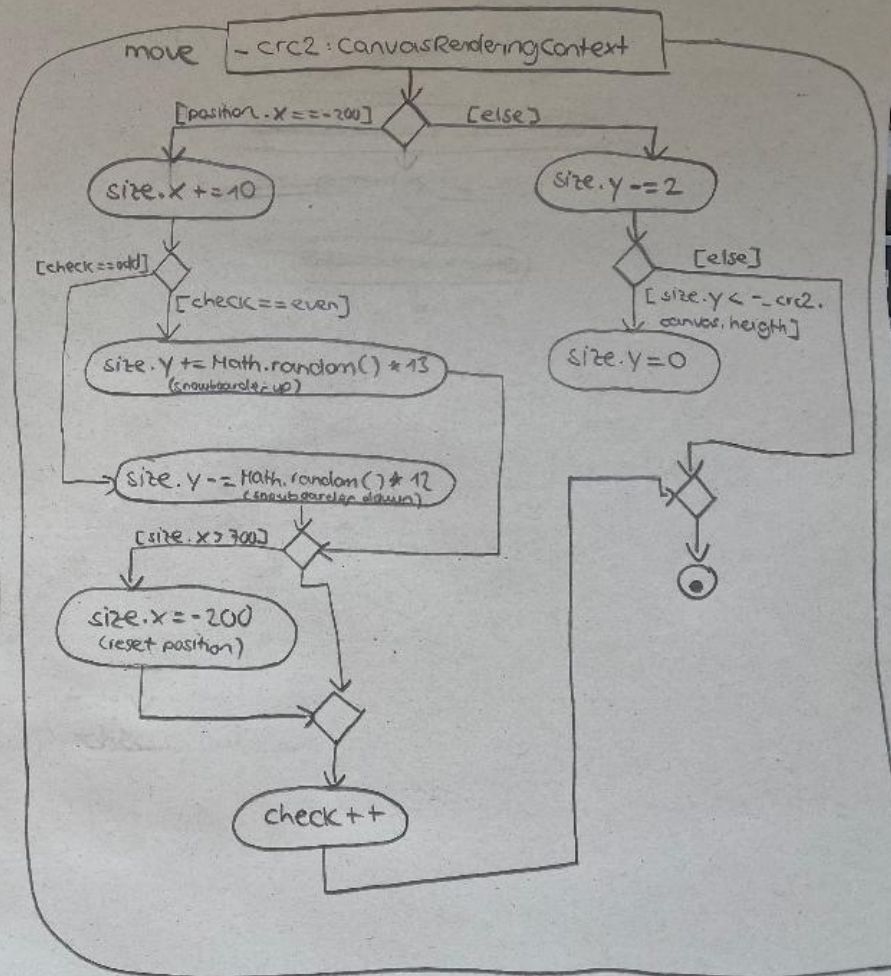 move
_crc2: CanvasRenderingContext
[position.x==-200]
[else]
size.x +=10
size.y -=2
[check==odd]
[check==even]
[else]
[size.y < -_crc2.
canvas.heigth]
size.y += Math.random() * 13
(snowboarder up)
size.y=0
size.y -= Math.random() * 12
(snowboarder down)
[size.x > 700]
size.x=-200
(reset position)
check++